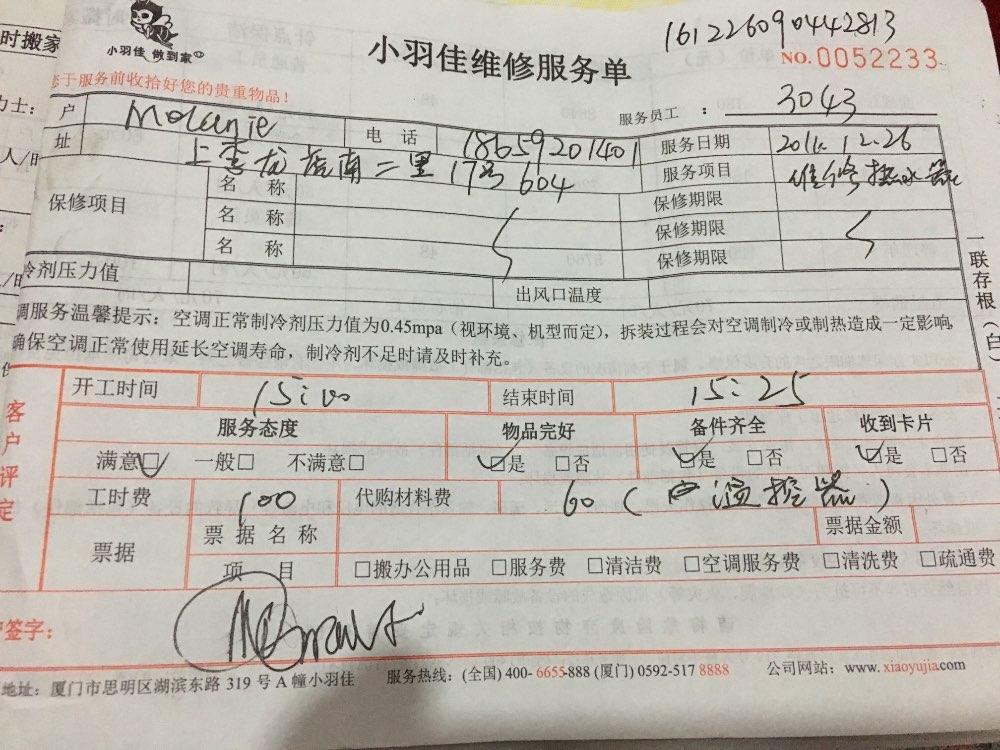 时搬家
小羽佳 做到家
小羽佳维修服务单
161226090442813
NO.0052233
您于服务前收拾好您的贵重物品！
服务员工 ： 3043
户 Melanie 电 话 18659201401 服务日期 2016.12.26
址 上李龙虎南二里17号604 服务项目 维修热水器
保修项目 名 称 保修期限
名 称 保修期限
名 称 保修期限
冷剂压力值 出风口温度
调服务温馨提示：空调正常制冷剂压力值为0.45mpa（视环境、机型而定），拆装过程会对空调制冷或制热造成一定影响，
确保空调正常使用延长空调寿命，制冷剂不足时请及时补充。
一联存根（白）
客户评定
开工时间 15:00 结束时间 15:25
服务态度 物品完好 备件齐全 收到卡片
满意☑ 一般□ 不满意□ ☑是 □否 ☑是 □否 ☑是 □否
工时费 100 代购材料费 60（温控器）
票据 票 据 名 称 票据金额
项 目 □搬办公用品 □服务费 □清洁费 □空调服务费 □清洗费 □疏通费
户签字：
地址：厦门市思明区湖滨东路 319 号 A 幢小羽佳 服务热线：(全国) 400- 6655-888 (厦门) 0592-517 8888 公司网站：www. xiaoyujia.com